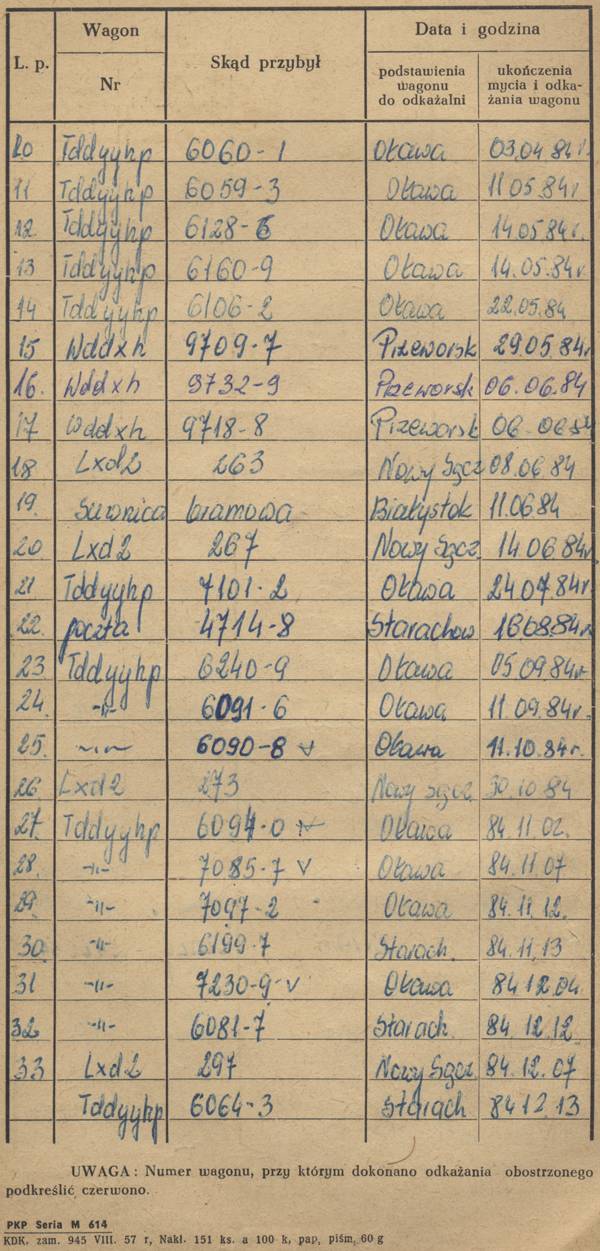 L. p. Wagon Nr Skąd przybył Data i godzina
podstawienia wagonu do odkażalni ukończenia mycia i odka-żania wagonu
10 Tddyyhp 6060-1 Oława 03.04 84 r.
11 Tddyyhp 6059-3 Oława 11 05.84r
12 Tddyyhp 6128-6 Oława 14 05.84r.
13 Tddyyhp 6160-9 Oława 14.05.84r
14 Tddyyhp 6106-2 Oława 22.05.84
15 Wddxh 9709-7 Przeworsk 29.05.84r
16. Wddxh 9732-9 Przeworsk 06.06.84
17 Wddxh 9718-8 Przeworsk 06 06
18 Lxd2 263 Nowy Sącz 08.06 84
19. Suwnica bramowa Białystok 11.06 84
20. Lxd2 267 Nowy Sącz. 14 06 84r
21 Tddyyhp 7101-2 Oława 24.07 84r.
22. poczta 4714-8 Starachow 84r
23 Tddyyhp 6240-9 Oława 05.09 84r
24. -"- 6091-6 Oława 11.09.84r.
25. -"- 6090-8 v Oława 11.10.84r.
26 Lxd2 273 Nowy Sącz. 30.10 84
27. Tddyyhp 6094-0 v Oława 84.11.02.
28. -"- 7085-7 v Oława 84.11.07
29. -"- 7097-2 Oława 84.11.12.
30. -"- 6199-7 Starach. 84.11.13
31 -"- 7230-9-v Oława 84 12.04
32. -"- 6081-7 Starach. 84.12.12
33 Lxd2 297 Nowy Sącz. 84.12.07
Tddyyhp 6064-3 Starach 84 12.13
UWAGA: Numer wagonu, przy którym dokonano odkażania obostrzonego
podkreślić czerwono.
PKP Seria M 614
KDK. zam. 945 VIII. 57 r, Nakł. 151 ks. a 100 k, pap, piśm, 60 g